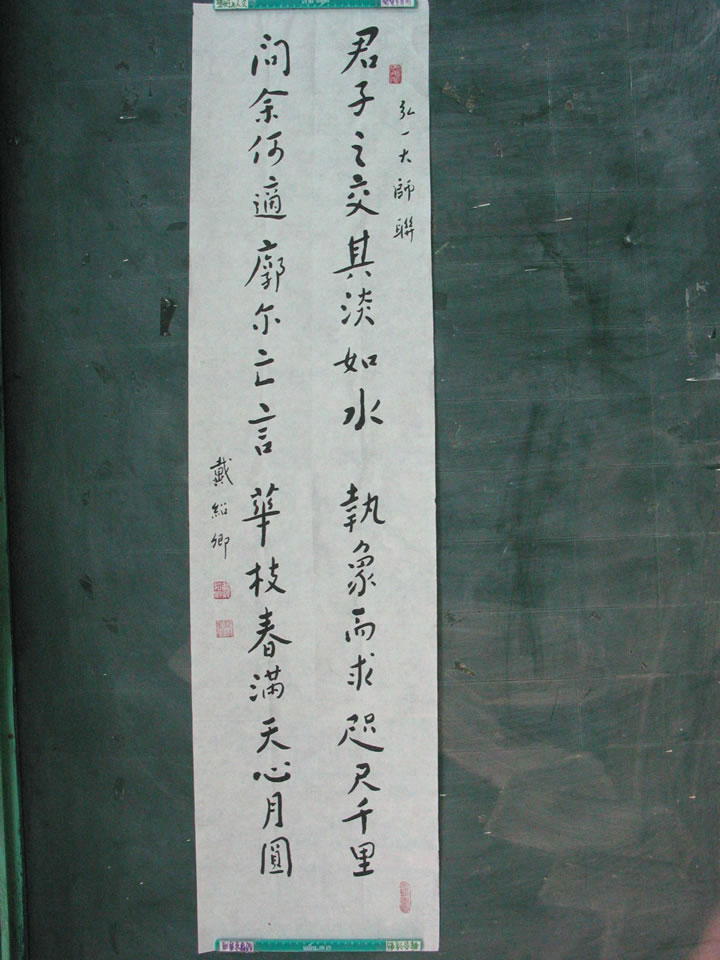 弘一大師聯
君子之交其淡如水 執象而求咫尺千里
問余何適廓尔亡言 華枝春滿天心月圓
戴紹卿